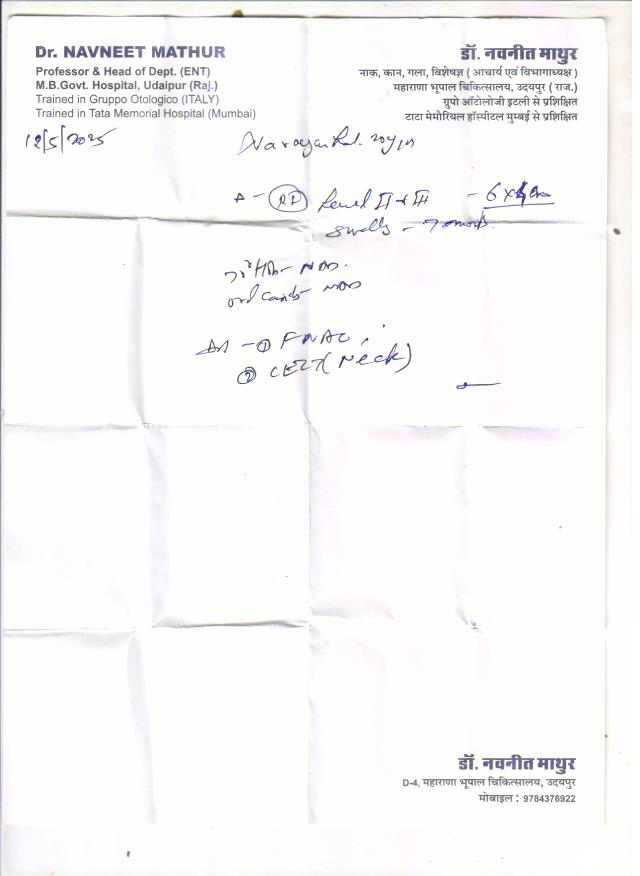 Dr. NAVNEET MATHUR
Professor & Head of Dept. (ENT)
M.B.Govt. Hospital, Udaipur (Raj.)
Trained in Gruppo Otologico (ITALY)
Trained in Tata Memorial Hospital (Mumbai)
डॉ. नवनीत माथुर
नाक, कान, गला, विशेषज्ञ ( आचार्य एवं विभागाध्यक्ष )
महाराणा भूपाल चिकित्सालय, उदयपुर ( राज.)
ग्रुपो ऑटोलोजी इटली से प्रशिक्षित
टाटा मेमोरियल हॉस्पीटल मुम्बई से प्रशिक्षित
12/5/2025
Level II + III
① FNAC
② CECT (Neck)
डॉ. नवनीत माथुर
D-4, महाराणा भूपाल चिकित्सालय, उदयपुर
मोबाइल : 9784376922